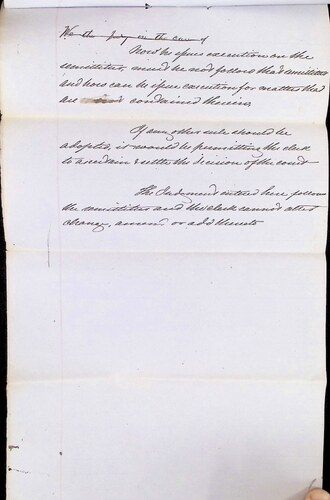 We the Jury in the case of
Now he issues execution on the
remittitur, must he not follow that remittitur
and how can he issue execution for matter that
are not contained therein
If any other rule should be
adopted, it would be permitting the clerk
to ascertain & settle the decision of the court
The Judgment entered here follows
the remittitur and the clerk cannot alter
change, amend or add thereto